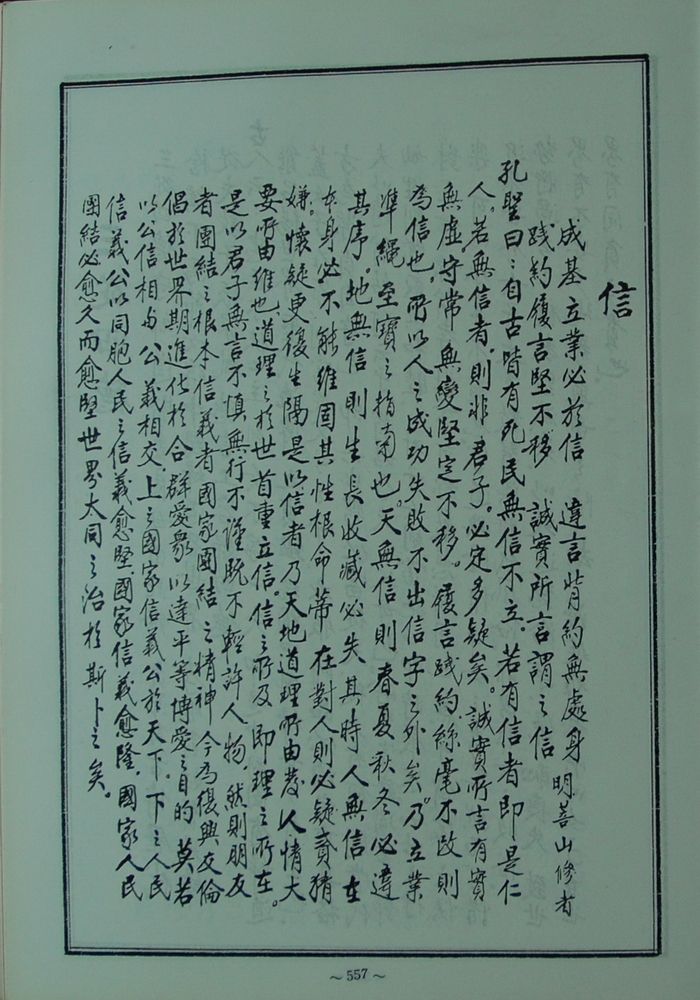 信
成基立業必於信　違言背約無處身　明善山修者
践約履言堅不移　誠實所言謂之信
孔聖曰：自古皆有死民無信不立。若有信者即是仁
人。若無信者，則非君子。必定多疑矣。誠實所言有實
無虛守常無變堅定不移。履言践約絲毫不改則
為信也，所以人之成功失敗不出信字之外矣。乃立業
準繩至寶之指南也。天無信則春夏秋冬必違
其序。地無信則生長收藏必失其時人無信在
本身必不能維固其性根命蒂在對人則必疑責猜
嫌。懷疑更復生隔是以信者乃天地道理所由發人情大
要所由維也，道理之於世首重立信。信之所及即理之所在。
是以君子無言不慎無行不謹既不輕許人物，然則朋友
者團結之根本信義者國家團結之精神今為復興友倫
倡於世界期進化於合群愛衆以達平等博愛之目的莫若
以公信相与公義相交上之國家信義公於天下，下之人民
信義公以同胞人民之信義愈堅，國家信義愈隆，國家人民
團結必愈久而愈堅世界大同之治於斯卜之矣。
～557～